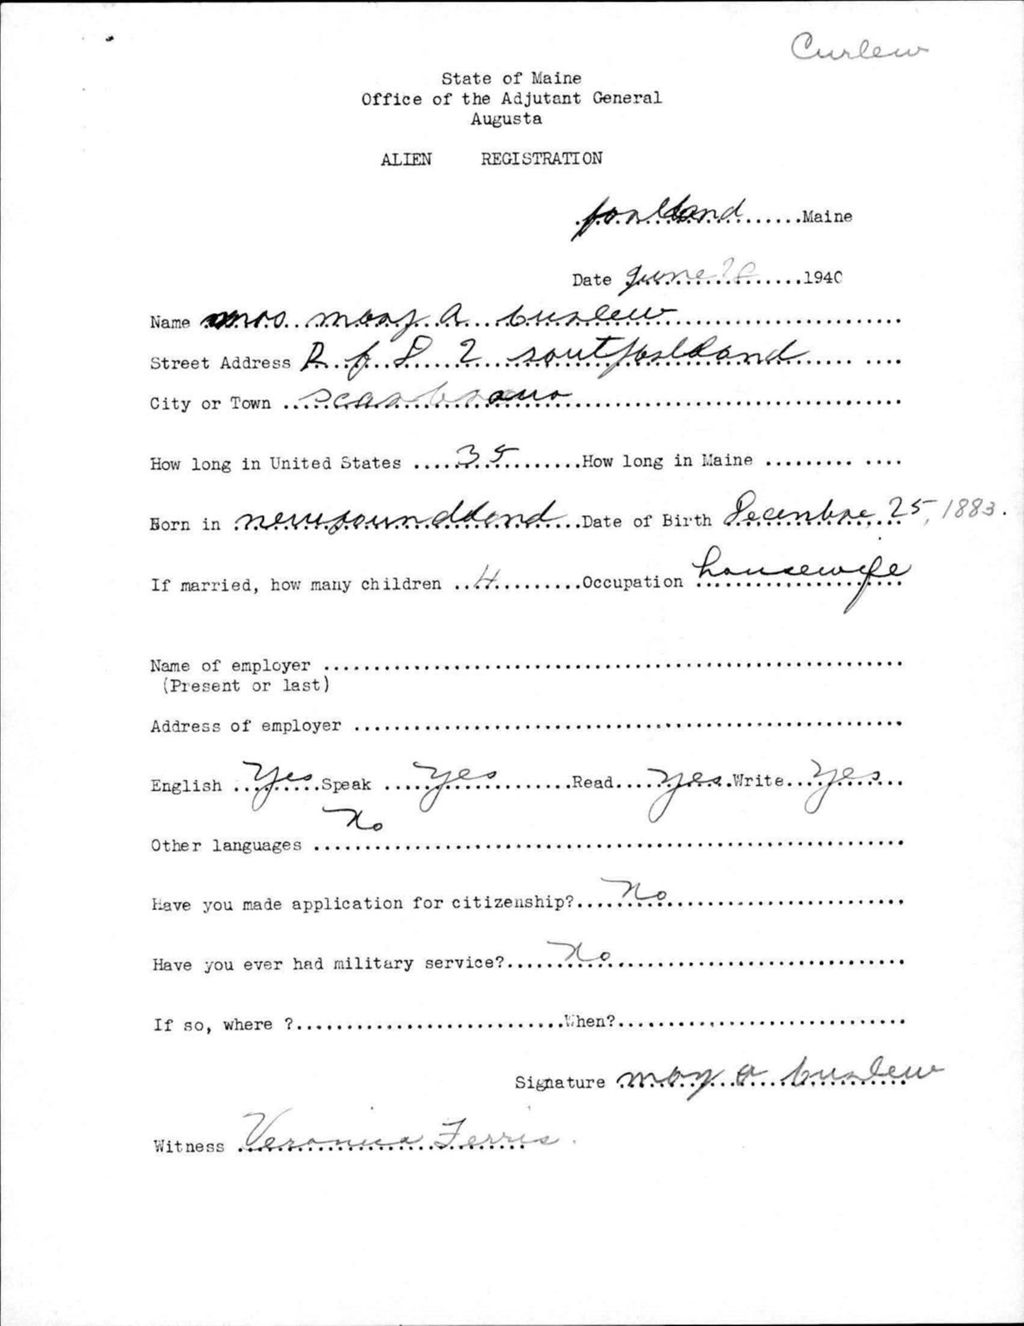 Curlew
State of Maine
Office of the Adjutant General
Augusta
ALIEN REGISTRATION
portland......Maine
Date June......1940
Name mrs. mary. a. curlew
Street Address R. f. D. 2 south portland
City or Town ..Scarboro
How long in United States .....35.........How long in Maine ......... ....
Born in newfoundland...Date of Birth Decembre 25, 1883.
If married, how many children ..4..........Occupation housewife
Name of employer
(Present or last)
Address of employer
English ..Yes.....Speak ....Yes...........Read....Yes..Write...Yes...
No
Other languages
Have you made application for citizenship?....No
Have you ever had military service?......No
If so, where ?...........................When?
Signature mary. a. curlew
Witness Veronica Ferris.